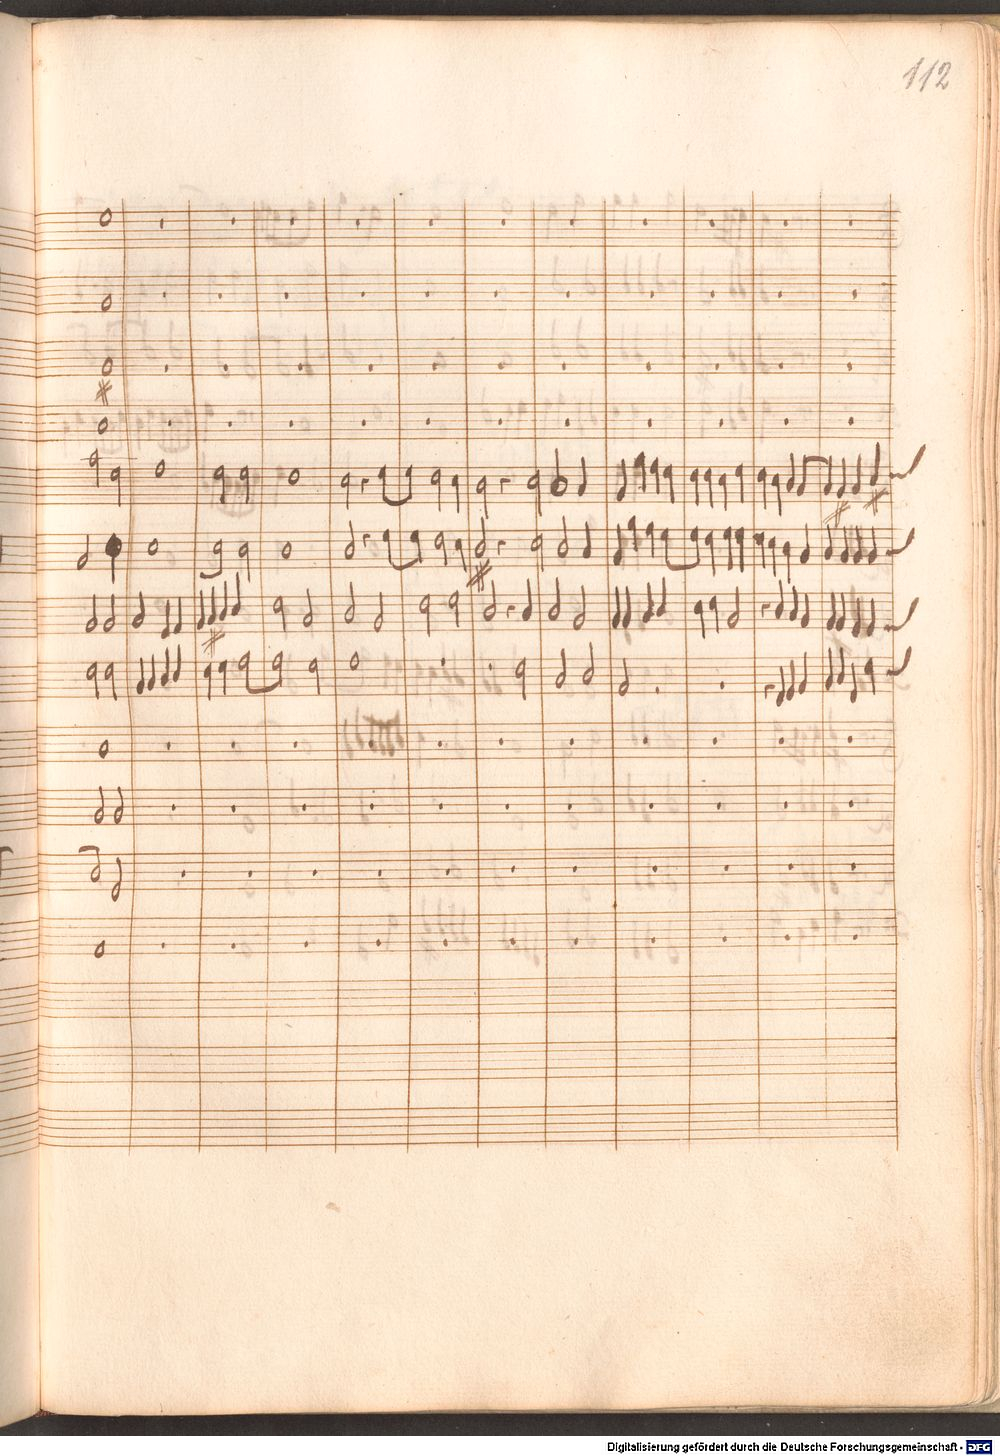 112
Digitalisierung gefördert durch die Deutsche Forschungsgemeinschaft - DFG